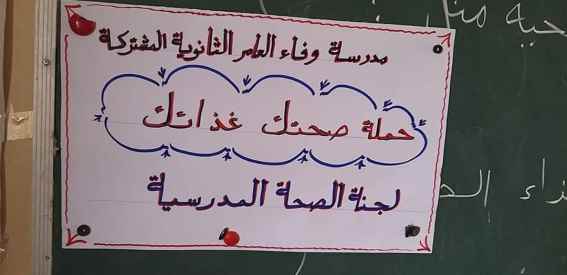 مدرسة وفاء العامر الثانوية المشتركة
حملة صحتك غذائك
لجنة الصحة المدرسية